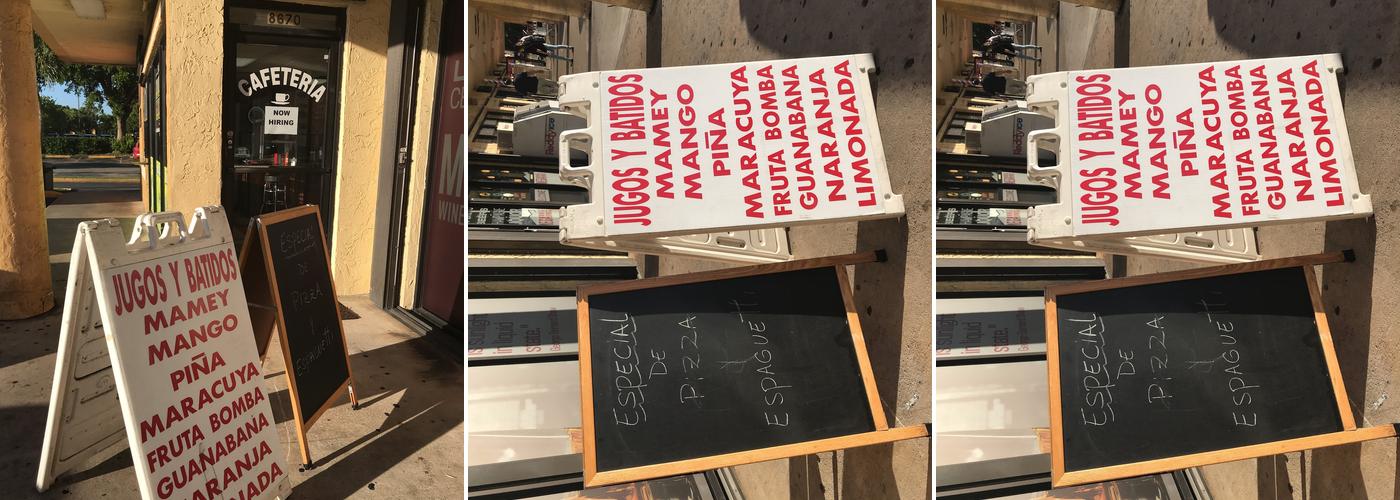 8670
CAFETERIA
NOW
HIRING
JUGOS Y BATIDOS
MAMEY
MANGO
PIÑA
MARACUYA
FRUTA BOMBA
GUANABANA
NARANJA
ESPECIAL
DE
PIZZA
Y
ESPAGUETTI
WINE
JUGOS Y BATIDOS
MAMEY
MANGO
PIÑA
MARACUYA
FRUTA BOMBA
GUANABANA
NARANJA
LIMONADA
ESPECIAL
DE
PIZZA
Y
ESPAGUETTI
in liquid
state."
JUGOS Y BATIDOS
MAMEY
MANGO
PIÑA
MARACUYA
FRUTA BOMBA
GUANABANA
NARANJA
LIMONADA
ESPECIAL
DE
PIZZA
Y
ESPAGUETTI
in liquid
state."